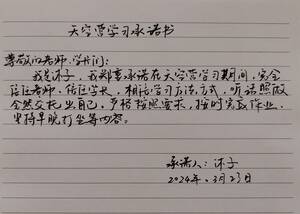 天容营学习承诺书
尊敬的老师、学长们：
我是怀子，我郑重承诺在天容营学习期间，完全
信任老师，信任学长，相信学习方法、方式，听话照做
全然交托出自己，严格按照要求，按时完成作业，
坚持早晚打坐等内容。
承诺人：怀子
2024年、3月23日